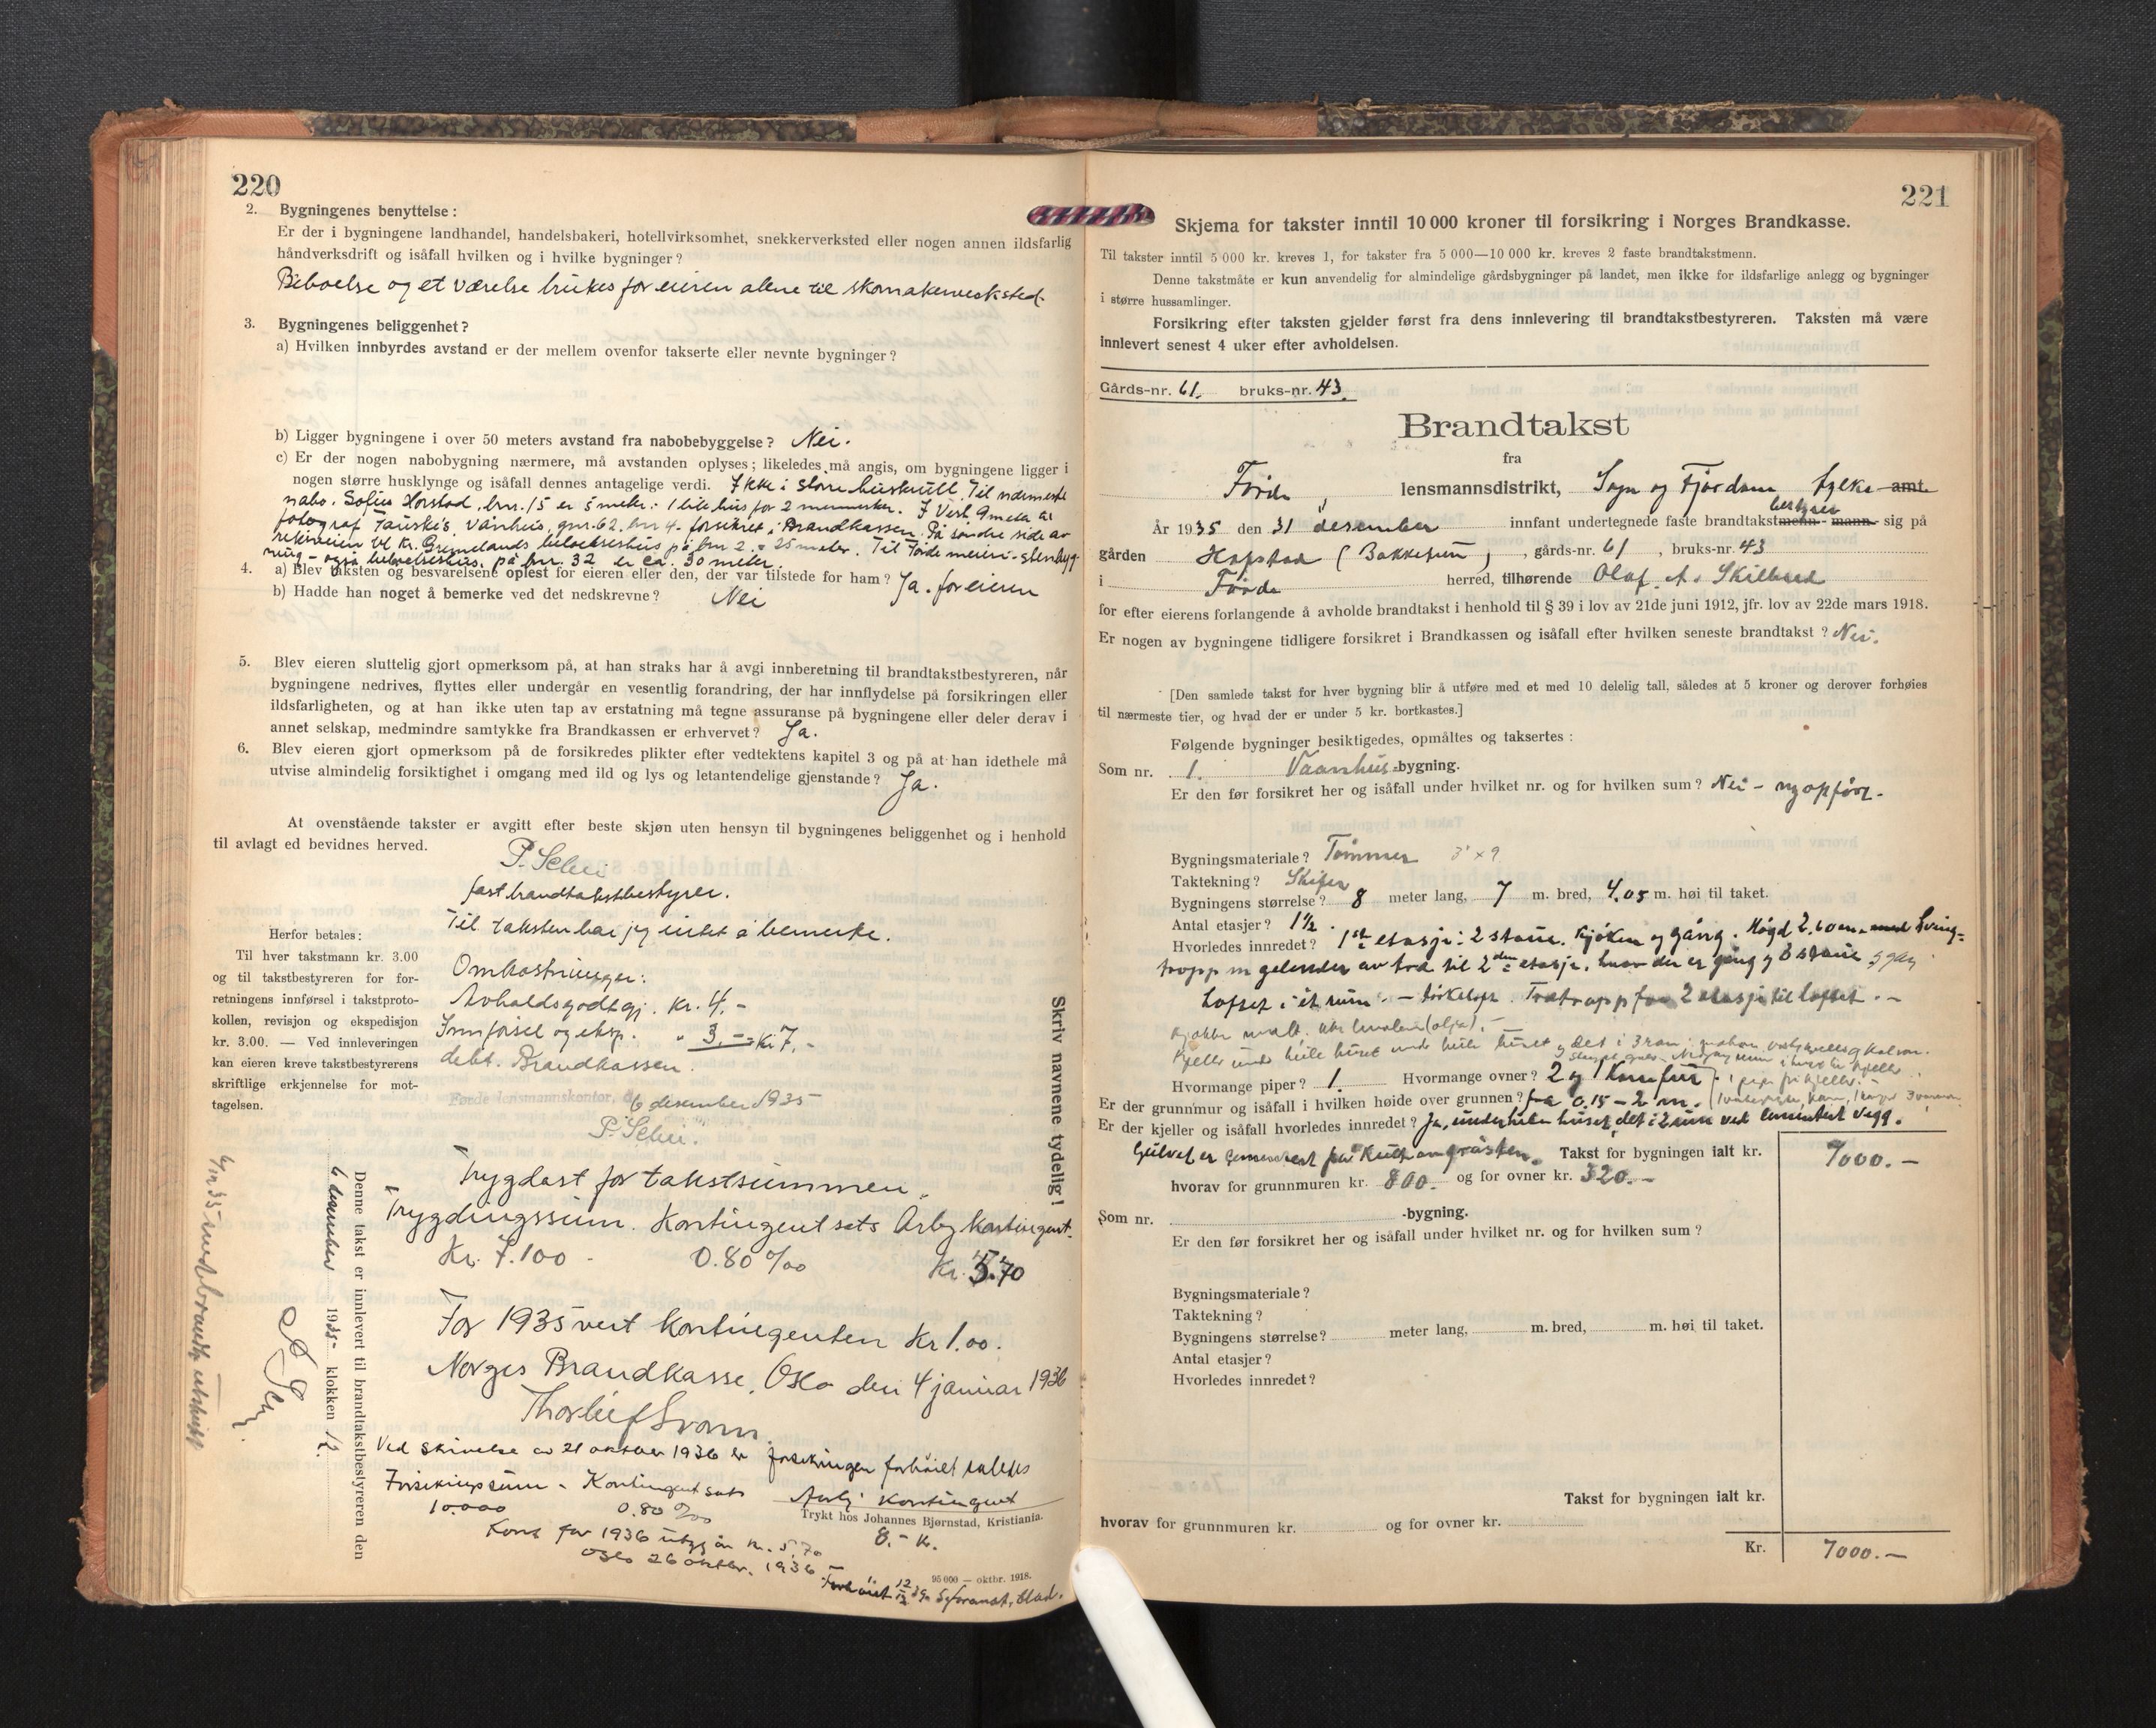 220
2. Bygningenes benyttelse :
Er der i bygningene landhandel, handelsbakeri, hotellvirksomhet, snekkerverksted eller nogen annen ildsfarlig
håndverksdrift og isåfall hvilken og i hvilke bygninger ?
Beboelse og et værelse brukes for eieren alene til skomakerverksted.
3. Bygningenes beliggenhet ?
a) Hvilken innbyrdes avstand er der mellem ovenfor takserte eller nevnte bygninger ?
b) Ligger bygningene i over 50 meters avstand fra nabobebyggelse ? Nei.
c) Er der nogen nabobygning nærmere, må avstanden oplyses ; likeledes må angis, om bygningene ligger i
nogen større husklynge og isåfall dennes antagelige verdi. Ikke i större Til nærmeste
nabo, Sofus bnr. 15 er 5 meter: 1 lite hus for 2 mennesker. I Vest 9 meter til
fotograf våningshus, gnr. 62, bnr 4 forsikret i Brandkassen. På söndre side av
riksveien til Kr. Grimelands beboelseshus på bnr 2. = 25 meter. Til Förde meieri
også beboelseshus, på bnr. 32 er ca. 30 meter.
4. a) Blev taksten og besvarelsene oplest for eieren eller den, der var tilstede for ham ? Ja. for eieren
b) Hadde han noget å bemerke ved det nedskrevne ? Nei
5. Blev eieren sluttelig gjort opmerksom på, at han straks har å avgi innberetning til brandtakstbestyreren, når
bygningene nedrives, flyttes eller undergår en vesentlig forandring, der har innflydelse på forsikringen eller
ildsfarligheten, og at han ikke uten tap av erstatning må tegne assuranse på bygningene eller deler derav i
annet selskap, medmindre samtykke fra Brandkassen er erhvervet ? Ja.
6. Blev eieren gjort opmerksom på de forsikredes plikter efter vedtektens kapitel 3 og på at han idethele må
utvise almindelig forsiktighet i omgang med ild og lys og letantendelige gjenstande ? Ja.
At ovenstående takster er avgitt efter beste skjøn uten hensyn til bygningenes beliggenhet og i henhold
til avlagt ed bevidnes herved.
fast brandtakstbestyrer.
Til taksten har jeg intet å bemerke.
Herfor betales :
Til hver takstmann kr. 3.00
og til takstbestyreren for for-
retningens innførsel i takstproto-
kollen, revisjon og ekspedisjon
kr. 3.00. — Ved innleveringen
kan eieren kreve takstbestyrerens
skriftlige erkjennelse for mot-
tagelsen.
Omkostninger:
Avholdsgodtgj. Kr. 4,-
Innförsel og eksp. " 3,- = Kr 7,-
debt. Brandkassen.
Førde lensmannskontor, 6 desember 1935
Skriv navnene tydelig !
Denne takst er innlevert til brandtakstbestyreren den
6 desember 1935 klokken 12.
Trygdast for takstsummen.
Trygdingssum. Kontingentsats Årleg kontingent.
Kr. 7.100 - 0.80 ‰ Kr. 5.70
For 1935 vert kontingenten Kr 1.00.
Norges Brandkasse, Oslo den 4 januar 1936
Ved skrivelse av 21 oktober 1936 er forsikringen forhöiet således
Forsikringssum - Kontingentsats Aarlig kontingent
10.000 0.80 ‰ 8.- Kr.
Trykt hos Johannes Bjørnstad, Kristiania.
Kont for 1936 utgjör kr. 5,70
Oslo 26 oktbr. 1936
95 000 — oktbr. 1918.
Forhöiet
221
Skjema for takster inntil 10 000 kroner til forsikring i Norges Brandkasse.
Til takster inntil 5 000 kr. kreves 1, for takster fra 5 000—10 000 kr. kreves 2 faste brandtakstmenn.
Denne takstmåte er kun anvendelig for almindelige gårdsbygninger på landet, men ikke for ildsfarlige anlegg og bygninger
i større hussamlinger.
Forsikring efter taksten gjelder først fra dens innlevering til brandtakstbestyreren. Taksten må være
innlevert senest 4 uker efter avholdelsen.
Gårds-nr. 61. bruks-nr. 43.
Brandtakst
fra
Förde, lensmannsdistrikt, Sogn og Fjordane fylke amt.
bestyrer
År 1935 den 31 desember innfant undertegnede faste brandtakstmenn- mann- sig på
gården Hafstad (Bakketun), gårds-nr. 61, bruks-nr. 43
i Förde herred, tilhørende Olaf A. Skilbred
for efter eierens forlangende å avholde brandtakst i henhold til § 39 i lov av 21de juni 1912, jfr. lov av 22de mars 1918.
Er nogen av bygningene tidligere forsikret i Brandkassen og isåfall efter hvilken seneste brandtakst ? Nei.
[Den samlede takst for hver bygning blir å utføre med et med 10 delelig tall, således at 5 kroner og derover forhøies
til nærmeste tier, og hvad der er under 5 kr. bortkastes.]
Følgende bygninger besiktigedes, opmåltes og taksertes :
Som nr. 1. Vaanhus-bygning.
Er den før forsikret her og isåfall under hvilket nr. og for hvilken sum ? Nei - nyopförr.
Bygningsmateriale ? Tömmer 3" x 9
Taktekning ? Skifer
Bygningens størrelse ? 8 meter lang, 7 m. bred, 4.05 m. høi til taket.
Antal etasjer ? 1½.
Hvorledes innredet ? 1ste etasje: 2 stove, kjöken og gång. Högd 2.60 m. med sving-
tropp m gelender av tre til 2den etasje, hvor der er gång og 3 stove
Loftet i et rum. - törkeloft. Tretrapp fra 2 etasje til loftet. -
Hvormange piper ? 1. Hvormange ovner ? 2 og 1 Komfur
Er der grunnmur og isåfall i hvilken høide over grunnen ? fra 0.15 - 2 m.
Er der kjeller og isåfall hvorledes innredet ? Ja, under hele huset, delt i 2 rum ved cementert vegg.
Gulvet er cementert på
Takst for bygningen ialt kr. 7000.-
hvorav for grunnmuren kr. 800.- og for ovner kr. 320.-
Som nr. -bygning.
Er den før forsikret her og isåfall under hvilket nr. og for hvilken sum ?
Bygningsmateriale ?
Taktekning ?
Bygningens størrelse ? meter lang, m. bred, m. høi til taket.
Antal etasjer ?
Hvorledes innredet ?
Takst for bygningen ialt kr.
hvorav for grunnmuren kr. og for ovner kr.
Kr. 7000.-